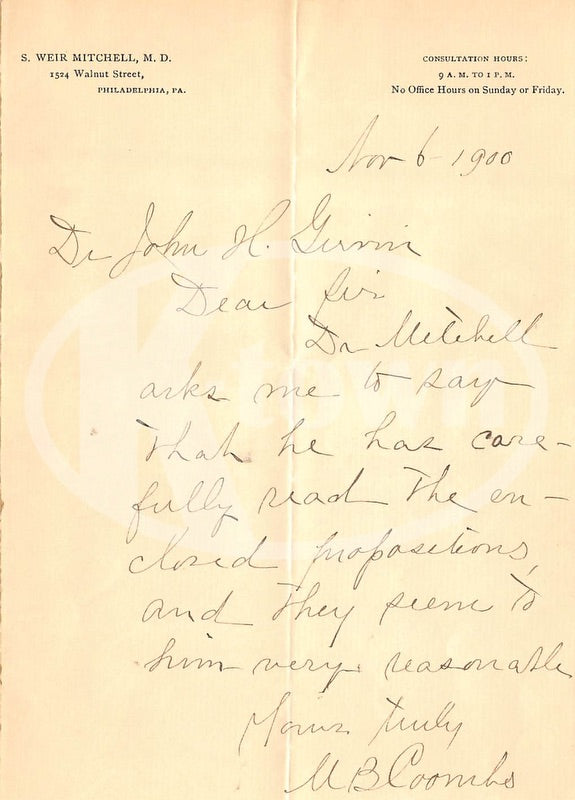 S. WEIR MITCHELL, M. D.
1524 Walnut Street,
PHILADELPHIA, PA.
CONSULTATION HOURS:
9 A. M. TO 1 P. M.
No Office Hours on Sunday or Friday.
Nov 6 1900
Dr John H. Girvin
Dear Sir
Dr Mitchell
asks me to say
that he has care-
fully read the en-
closed propositions,
and they seem to
him very reasonable
Yours truly
M B Coombs
K town